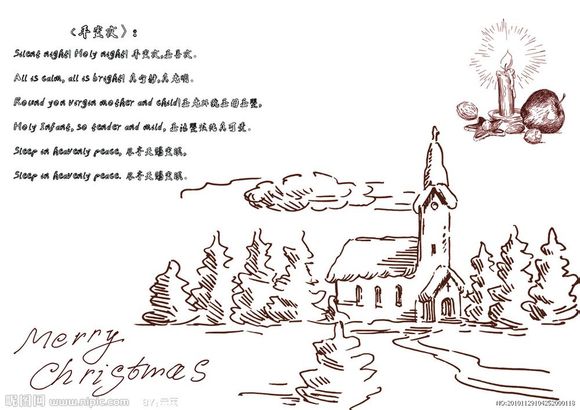 《平安夜》:
Silent night! Holy night! 平安夜,圣善夜。
All is calm, all is bright! 真宁静,真光明。
Round yon virgin mother and child!圣光环绕圣母圣婴,
Holy Infant, so tender and mild, 圣洁婴孩纯真可爱。
Sleep in heavenly peace, 尽享天赐安眠,
Sleep in heavenly peace. 尽享天赐安眠。
Merry
Christmas
昵图网 www.nipic.com BY:
NO:20101129104252000118